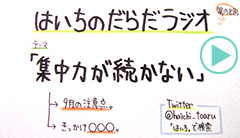 はいちのだらだらラジオ
テーマ
「集中力が続かない」
9月の注意点。
きっかけ〇〇〇。
Twitter
@haichi_toaru
「はいち」で検索